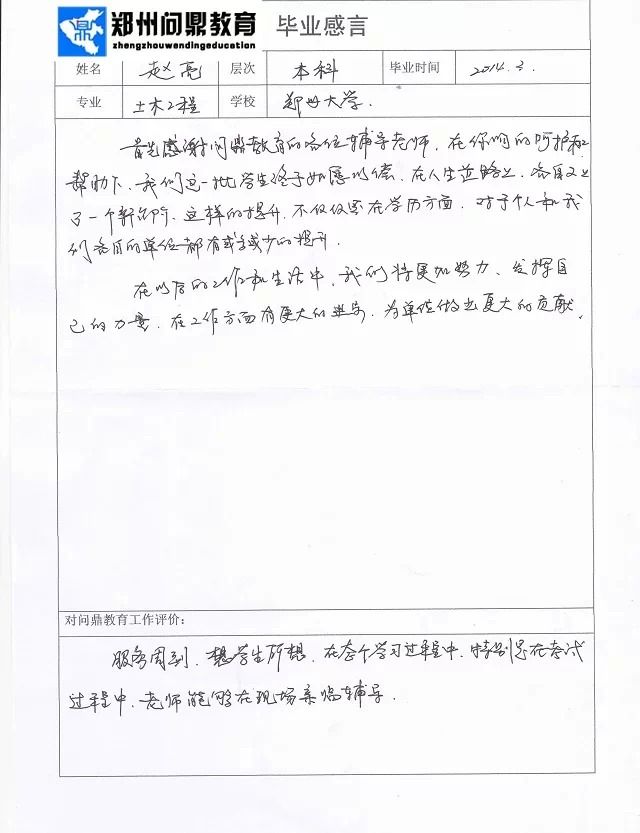 郑州问鼎教育
zhengzhouwendingeducation
毕业感言
姓名 赵亮 层次 本科 毕业时间 2014.3.
专业 土木工程 学校 郑州大学.
首先感谢问鼎教育的各位辅导老师,在你们的呵护和
帮助下,我们这一批学生终于如愿以偿,在人生道路上,各自又上
了一个新台阶,这样的提升,不仅仅是在学历方面,对于个人和我
们各自的单位都有或多或少的提升.
在以后的工作和生活中,我们将更加努力,发挥自
己的力量,在工作方面有更大的进步,为单位做出更大的贡献.
对问鼎教育工作评价:
服务周到,想学生所想,在整个学习过程中,特别是在考试
过程中,老师能够在现场亲临辅导.